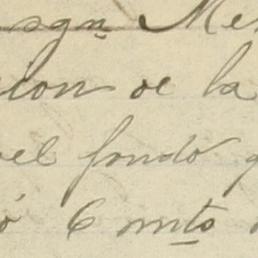 sgn Me
cion de la
el fondo
ó 6 mto